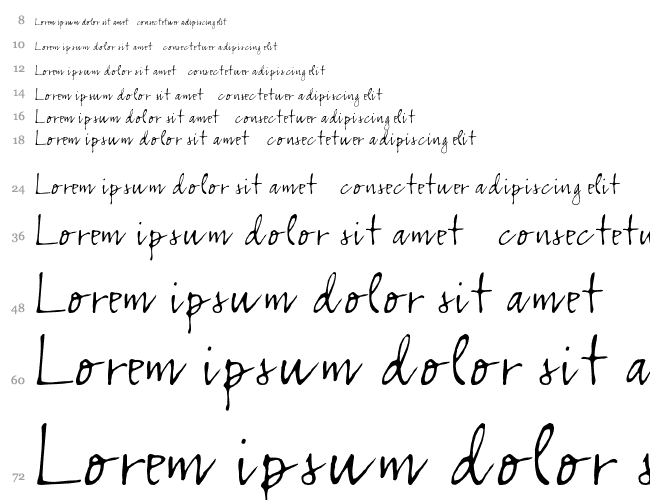 8 Lorem ipsum dolor sit amet consectetuer adipiscing elit
10 Lorem ipsum dolor sit amet consectetuer adipiscing elit
12 Lorem ipsum dolor sit amet consectetuer adipiscing elit
14 Lorem ipsum dolor sit amet consectetuer adipiscing elit
16 Lorem ipsum dolor sit amet consectetuer adipiscing elit
18 Lorem ipsum dolor sit amet consectetuer adipiscing elit
24 Lorem ipsum dolor sit amet consectetuer adipiscing elit
36 Lorem ipsum dolor sit amet consectetu
48 Lorem ipsum dolor sit amet
60 Lorem ipsum dolor sit a
72 Lorem ipsum dolor s